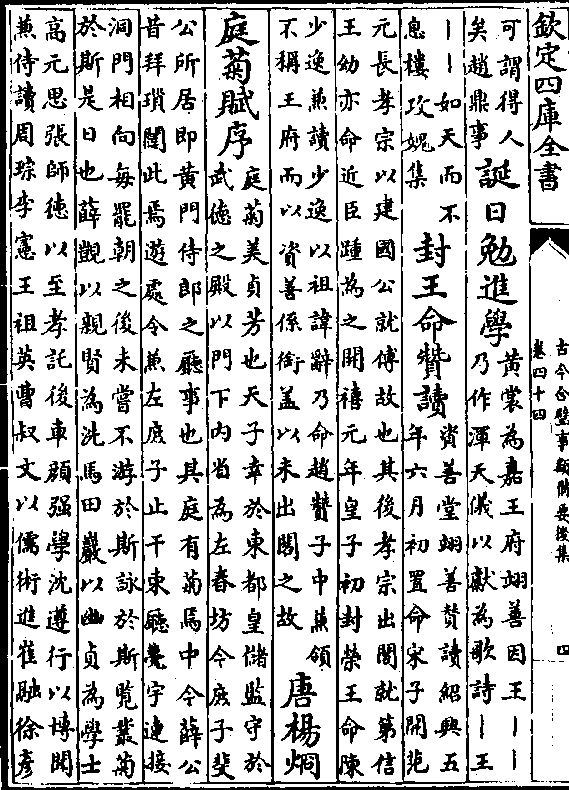 欽定四庫全書
古今合璧事類備要後集
卷四十四
四
可謂得人
矣趙鼎事
誕日勉進學
黃裳為嘉王府翊善因王丨丨
乃作渾天儀以獻為歌詩丨王
丨丨如天而不
息樓攻媿集
封王命贊讀
資善堂翊善贊讀紹興五
年六月初置命宋子開范
元長孝宗以建國公就傅故也其後孝宗出閤就第信
王幼亦命近臣踵為之開禧元年皇子初封榮王命陳
少逸兼讀少逸以祖諱辭乃命趙贊子中兼領
不稱王府而以資善係銜蓋以未出閤之故
唐楊炯
庭菊賦序
庭菊美貞芳也天子幸於東都皇儲監守於
武德之殿以門下內省為左春坊今庶子斐
公所居即黃門侍郎之廳事也其庭有菊焉中令薛公
昔拜瑣闈此焉遊處今兼左庶子止干東廳甍宇連接
洞門相向每罷朝之後未嘗不游於斯詠於斯覽叢菊
於斯是日也薛觀以親賢為洗馬田巖以幽貞為學士
高元思張師德以至孝託後車顏强學沈遵行以博聞
兼侍讀周琮李憲王祖英曹叔文以儒術進崔融徐彥